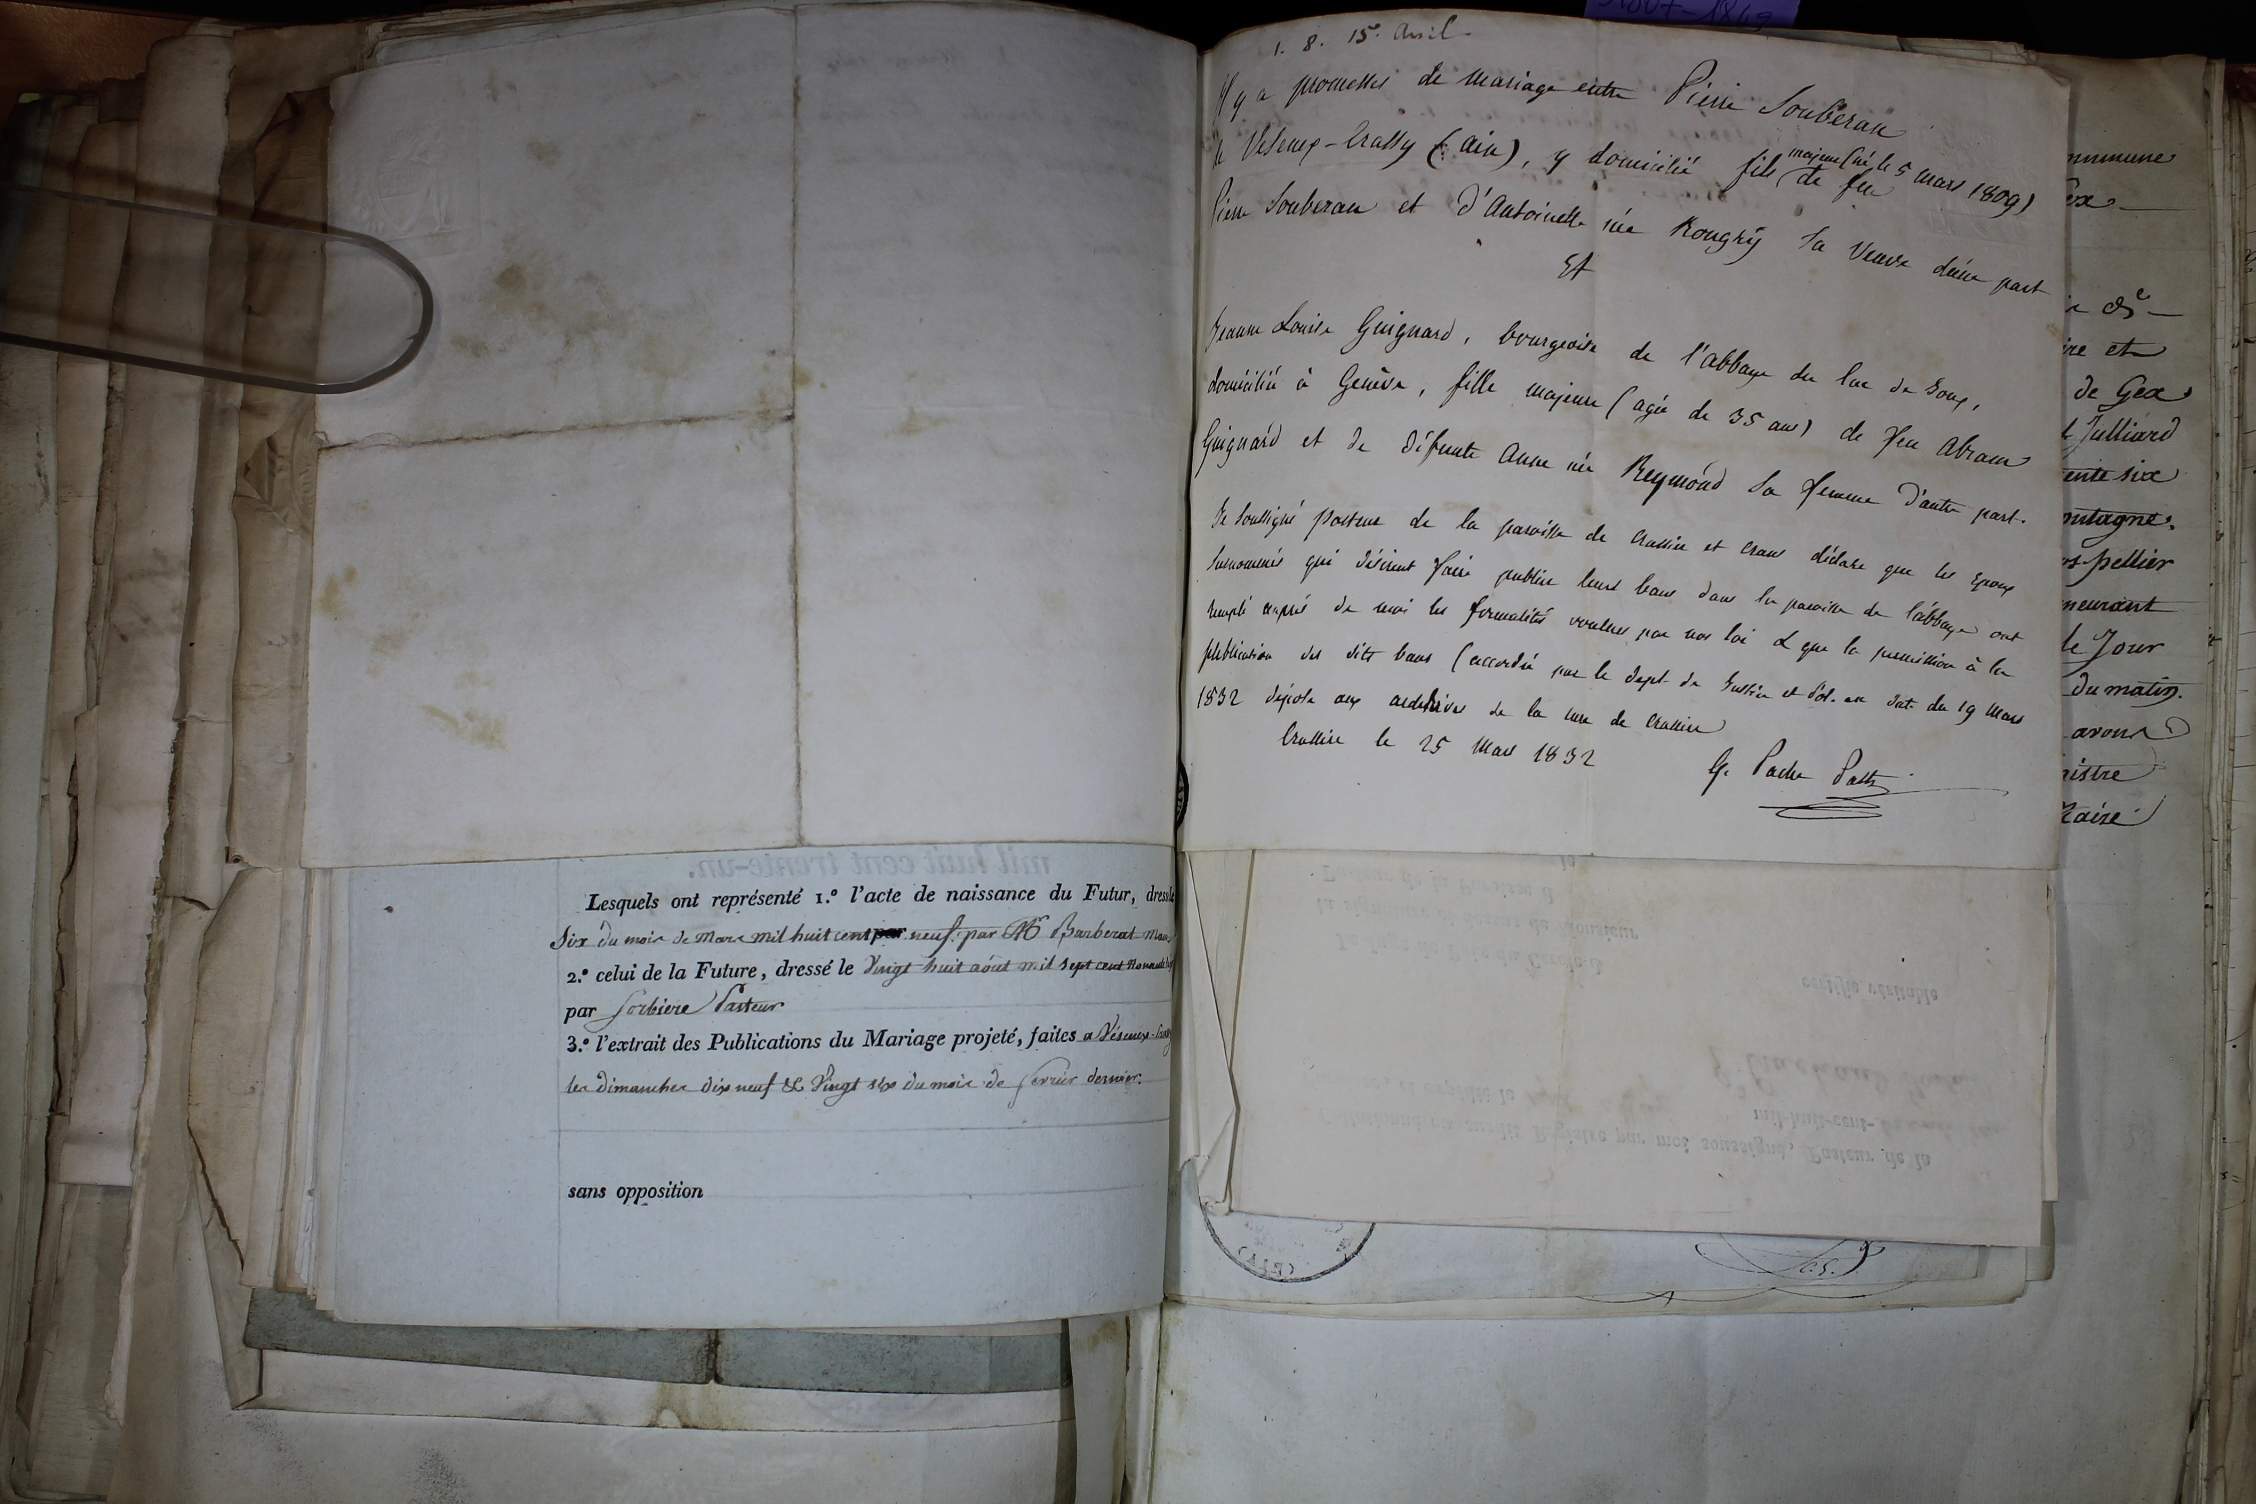 mil huit cent trente-un.
Lesquels ont représenté 1.° l'acte de naissance du Futur, dressé le
Six du mois de Mars mil huit cent neuf par Mr Barberat Maire
2.° celui de la Future, dressé le Vingt huit aôut mil sept cent
par Sorbiere Pasteur
3.° l'extrait des Publications du Mariage projeté, faites a Vésenex-Crassy
les dimanches dix neuf & Vingt six du mois de fevrier dernier.
sans opposition
1. 8. 15. Avril
Il y a promesses de mariage entre Pierre Souberan
de Vesenex-Crassy (Ain), y domicilié fils majeur (né le 5 mars 1809) de feu
Pierre Souberan et d'Antoinette née Rougny sa Veuve d'une part
Et
Jeanne Louise Guignard, bourgeoise de l'abbaye du lac de Joux,
domiciliée à Genève, fille majeure (agée de 35 ans) de feu Abram
Guignard et de défunte Anne née Reymond sa femme d'autre part.
Je soussigné pasteur de la paroisse de Crassier et Crans déclare que les Epoux
surnommés qui désirent faire publier leurs bans dans la paroisse de l'abbaye ont
rempli auprès de moi les formalités voulues par nos loi & que la permission à la
publication des dits bans (accordée par le dept. de Justice et Pol. en date du 19 Mars
1832 dépose aux archives de la cure de Crassier
Crassier le 25 Mars 1832
G. Pache Past
ommune
Gex
ire et
de Gex
Julliard
trente six
montagne.
pellier
meurant
le Jour
du matin.
avons
nistre
Maire